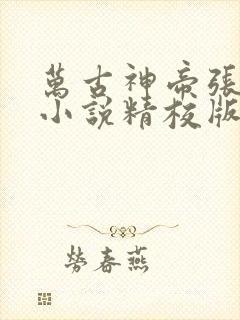 萬古神帝張
小說精校版
勞春燕